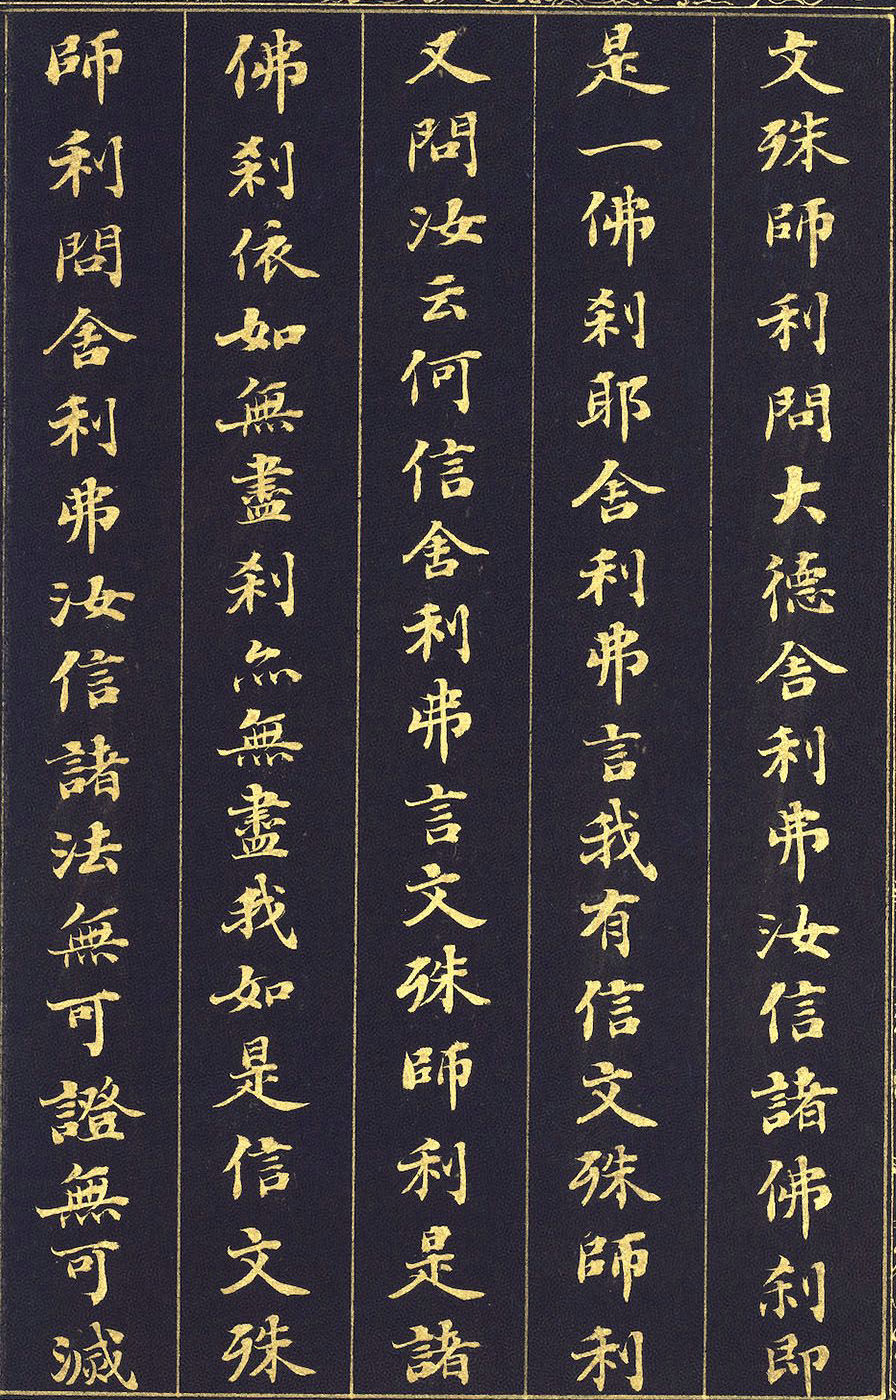 文殊師利問大德舍利弗汝信諸佛刹即
是一佛刹耶舍利弗言我有信文殊師利
又問汝云何信舍利弗言文殊師利是諸
佛刹依如無盡刹亦無盡我如是信文殊
師利問舍利弗汝信諸法無可證無可滅